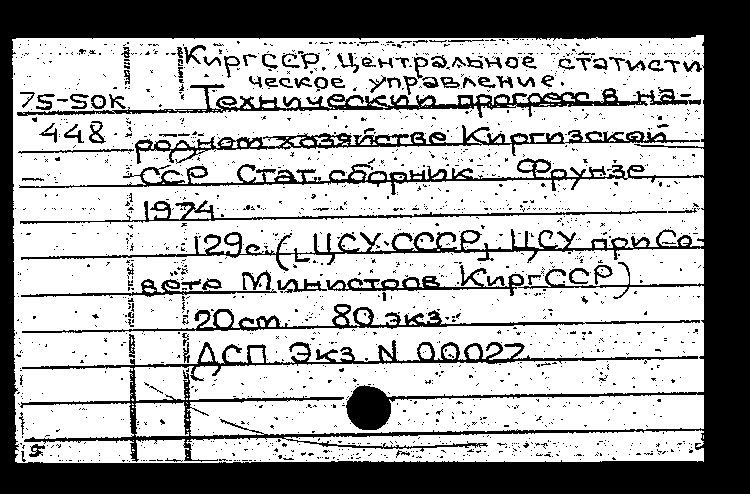 КиргССР. Центральное статисти-
ческое управление.
75-50к Технический прогресс в на-
448 родном хозяйстве Киргизской
ССР Стат. сборник Фрунзе,
1974.
129с. ([ЦСУ СССР] ЦСУ при Со-
вете Министров КиргССР)
20cm. 80 экз.
ДСП Экз. N 00027